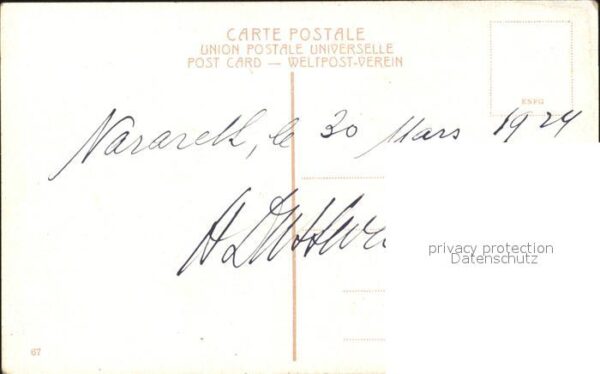 CARTE POSTALE
UNION POSTALE UNIVERSELLE
POST CARD — WELTPOST-VEREIN
KSPG
Nazareth, le 30 Mars 1924
privacy protection
Datenschutz
67